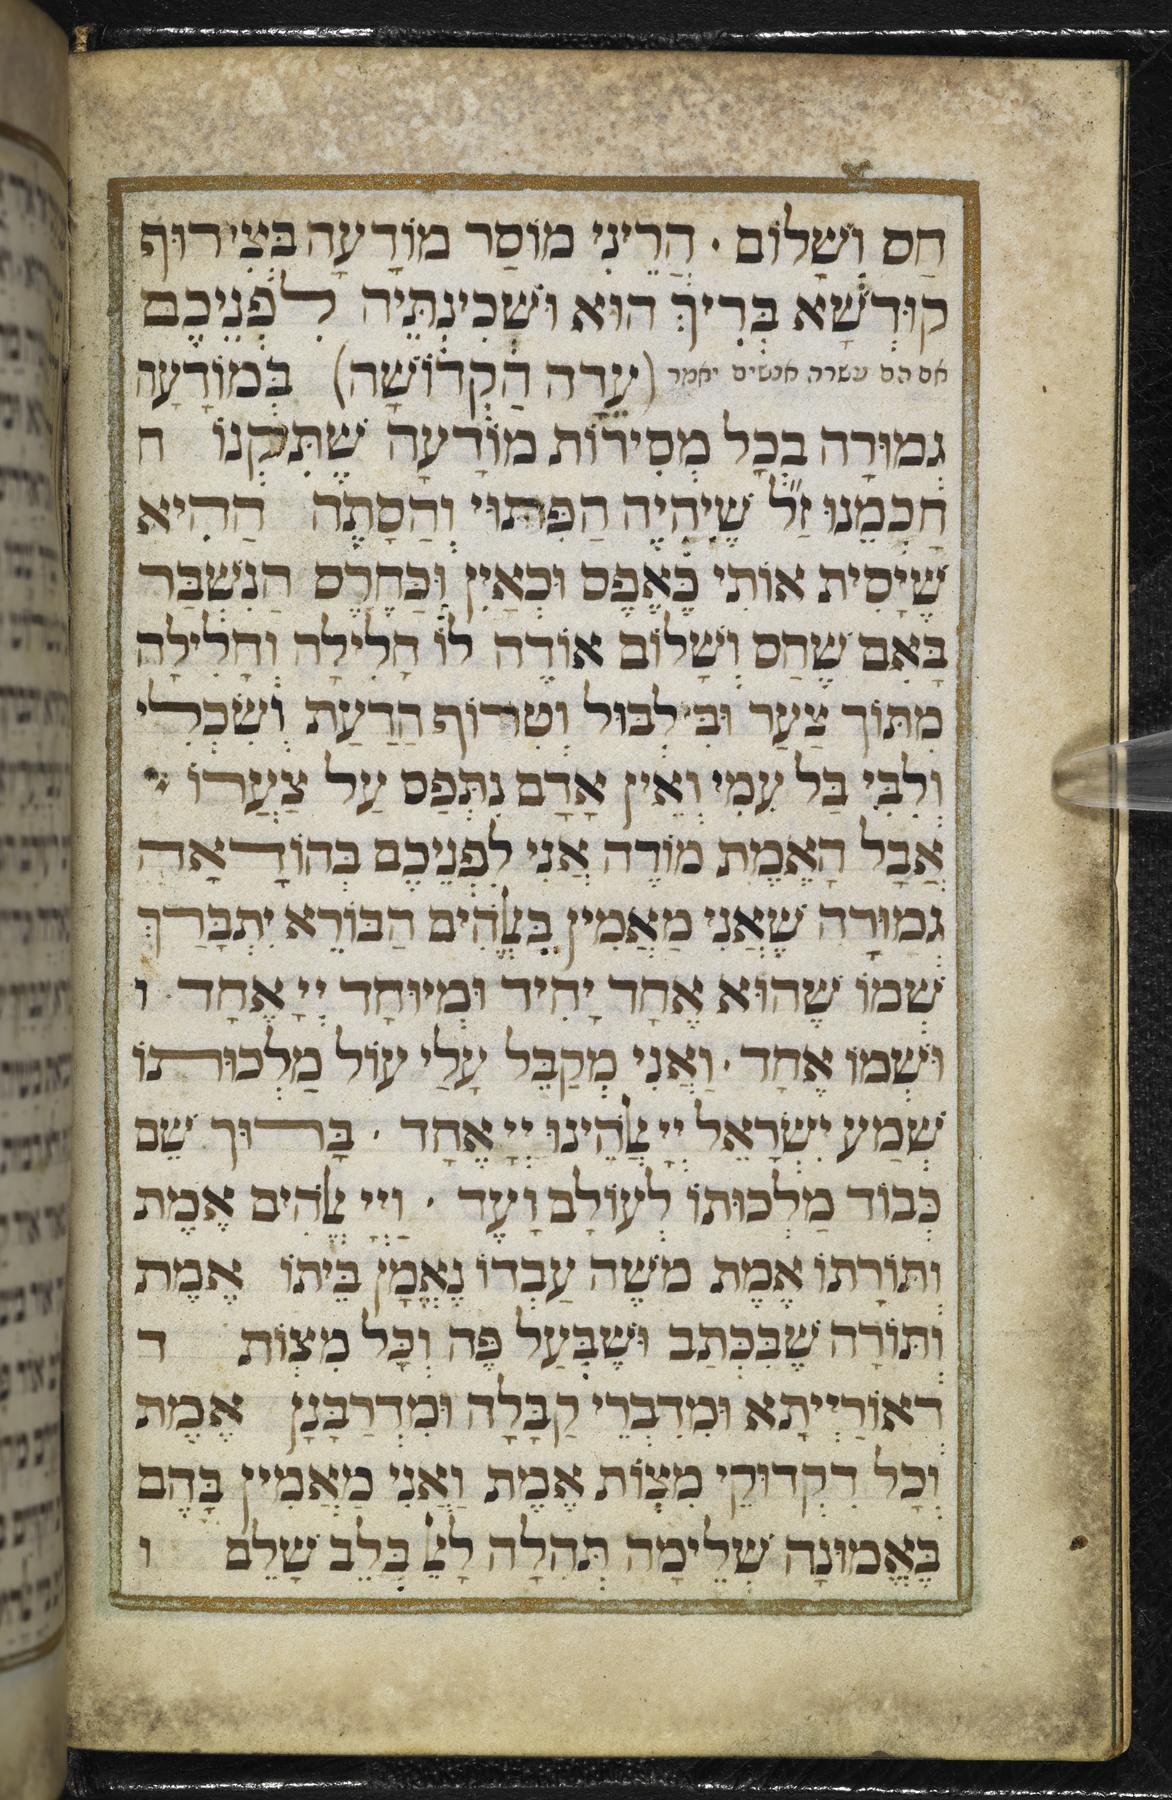 חַס וְשָׁלוֹם · הֲרֵינִי מוֹסַר מוֹדָעָה בְּצִירוּף
קוּדְשָׁא בְּרִיךְ הוּא וּשְׁכִינְתֵּיהּ לִפְנֵיכֶם
אם הם עשרה אנשים יאמר (עֵדָה הַקְדוֹשָׁה) בְּמוֹדָעָה
גְמוּרָה בְּכָל מְסִירוֹת מוֹדָעָה שֶׁתִּקְנוּ ח
חֲכָמֵנוּ זַ״ל שֶׁיִהְיֶה הַפִּתוּי וְהַסָתָה הַהִיא
שֶׁיָסִית אוֹתִי כְּאֶפֶס וּכְאַיִן וּכַּחֶרֶס הַנִשְׁבַּר
בָּאִם שֶׁחַס וְשָׁלוֹם אוֹדֶה לוֹ חָלִילָה וְחָלִילָה
מִתּוֹךְ צַעַר וּבִילְבּוּל וְטִרוּף הַדַעַת וְשִׂכְלִי
וְלִבִּי בַּל עִמִי וְאֵין אָדָם נִתְפַּס עַל צַעֲרוֹ ·
אֲבָל הָאֱמֶת מוֹדֶה אֲנִי לִפְנֵיכֶם בְּהוֹדָאָה
גְמוּרָה שֶׁאֲנִי מַאֲמִין בֶּﭏהִים הַבּוֹרֵא יִתְבָּרַךְ
שְׁמוֹ שֶׁהוּא אֶחָד יָחִיד וּמְיוּחָד יְיָ אֶחָד · ו
וּשְׁמוֹ אֶחָד · וַאֲנִי מְקַבֵּל עָלַי עוֹל מַלְכוּתוֹ
שְׁמַע יִשְׂרָאֵל יְיָ ﭏהֵינוּ יְיָ אֶחָד · בָּרוּךְ שֵׁם
כְּבוֹד מַלְכוּתוֹ לְעוֹלָם וָעֶד · וַיְיָ ﭏהִים אֱמֶת
וְתּוֹרָתוֹ אֱמֶת מֹשֶׁה עַבְדוֹ נֶאֱמָן בֵּיתוֹ אֱמֶת
וְתּוֹרָה שֶׁבִּכְתַב וּשֶׁבְּעַל פֶּה וְכָל מִצְוֹת ד
דְאוֹרַיְיתָא וּמִדִבְרֵי קַבָּלָה וּמִדְרַבָּנָן אֱמֶת
וְכָל דִקְדוּקֵי מִצְוֹת אֱמֶת וַאֲנִי מַאֲמִין בָּהֶם
בֶּאֱמוּנָה שְׁלֵימָה תְּהִלָה לָﭏ בְּלֵב שָׁלֵם ו